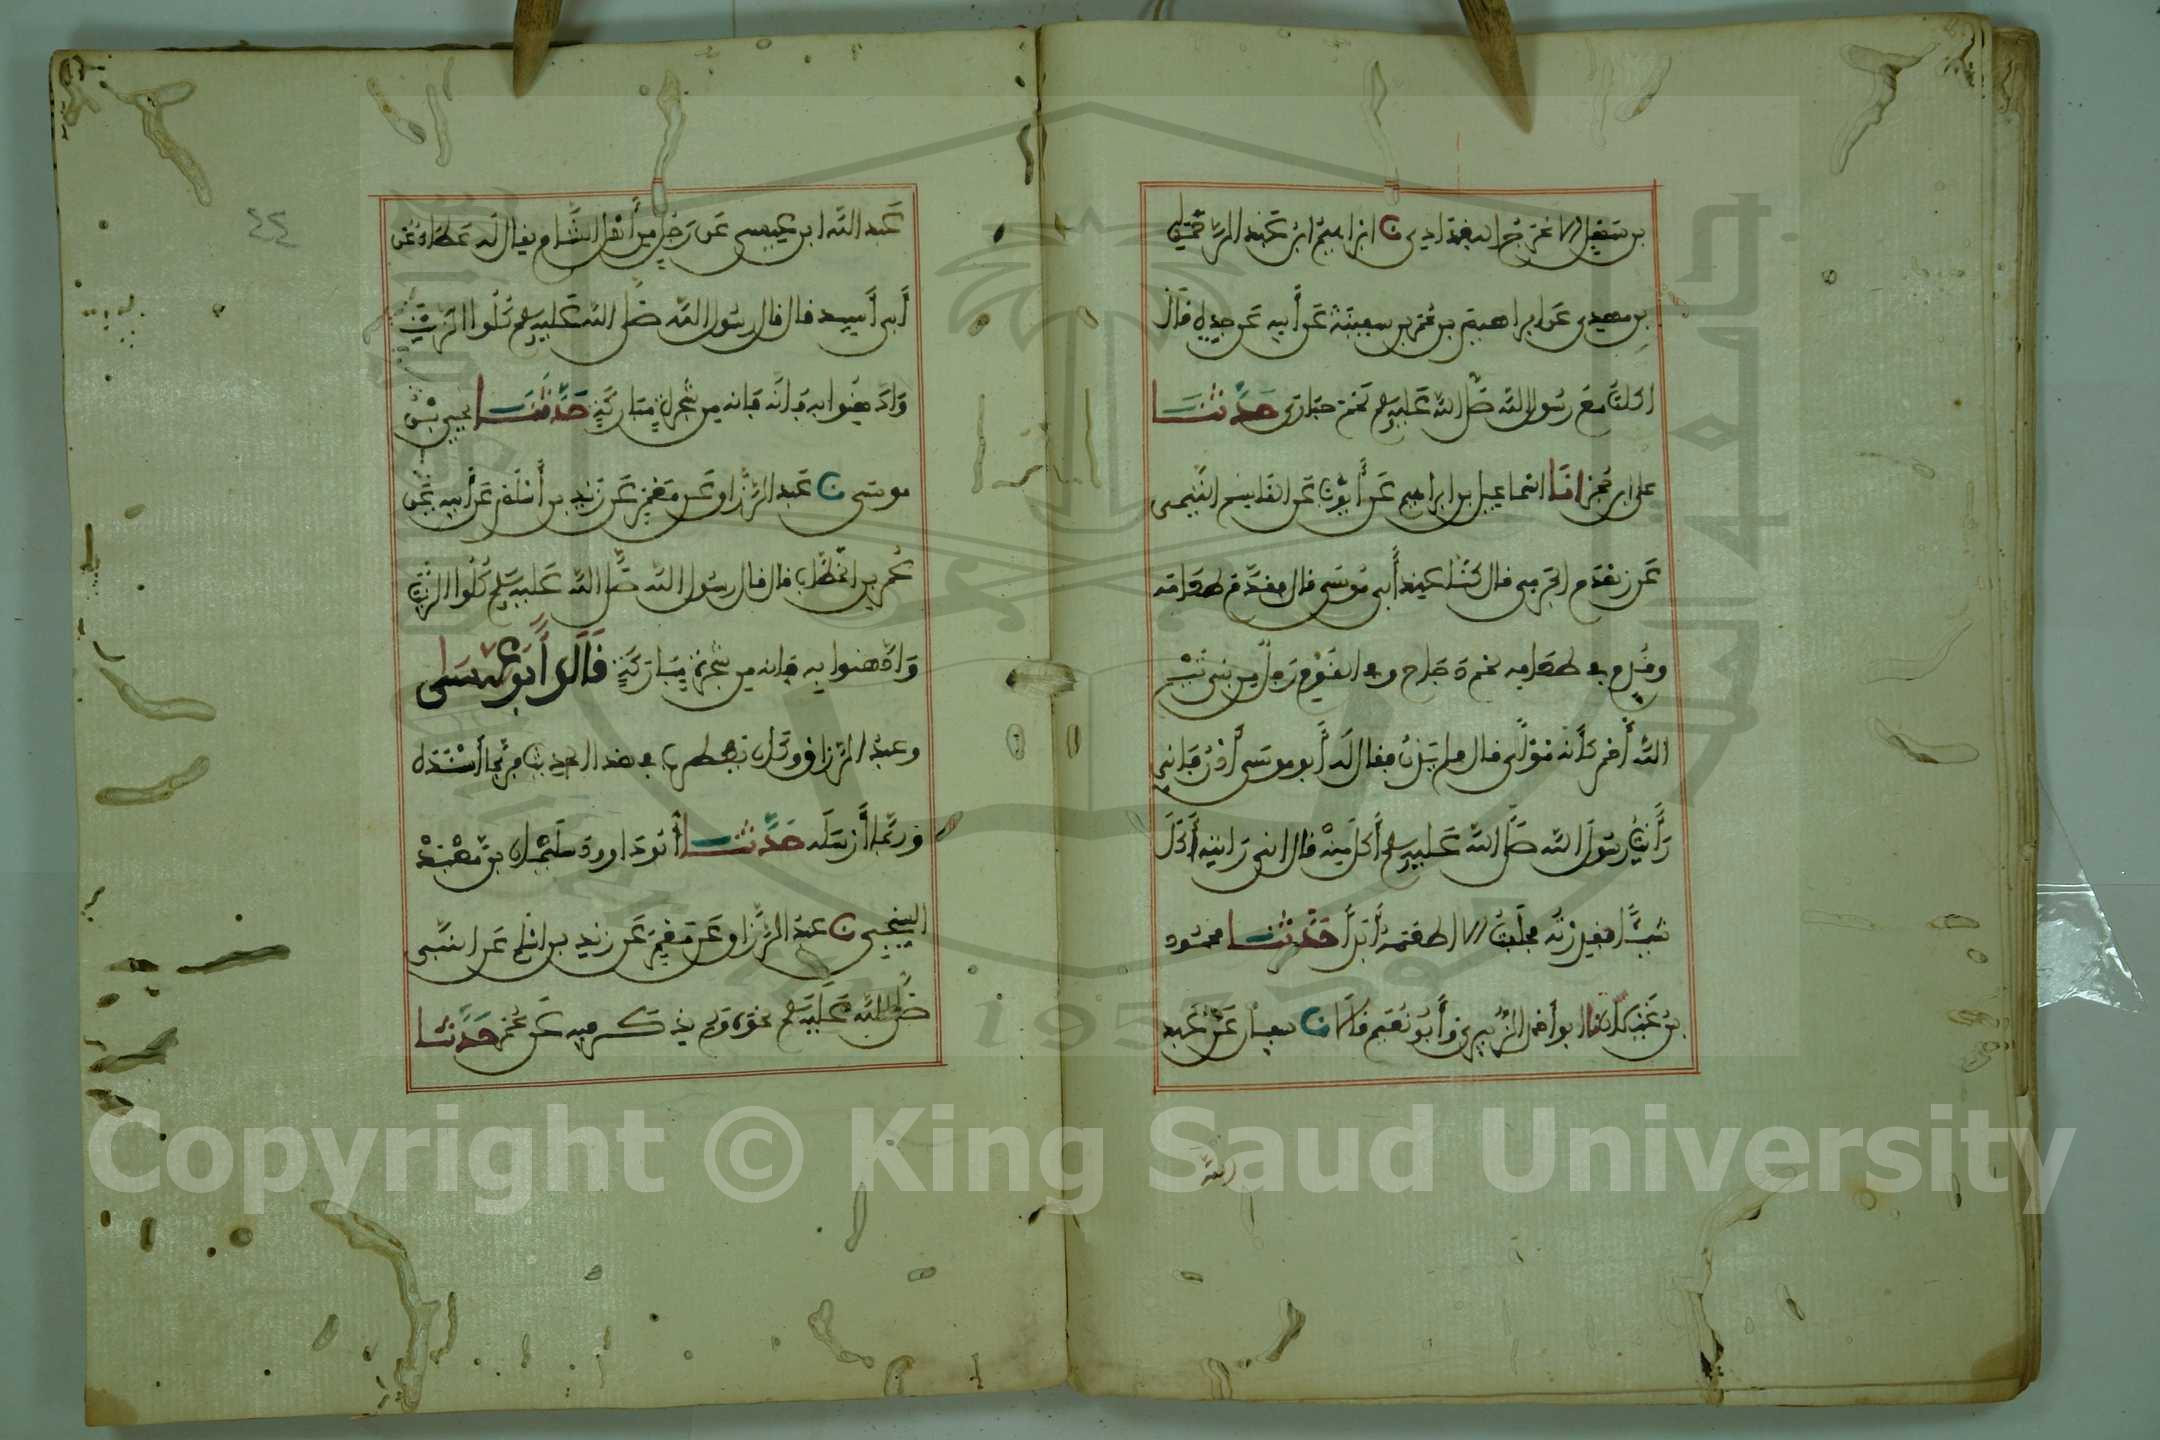 بن سهل الاعرج البغدادي ن ابراهيم ابن عبد الرحمن
بن مهدي عن ابراهيم بن عمر بن سفينة عن أبيه عن جده قال
اكلت مع رسول الله صلى الله عليه وسلم لحم حبارى حدثنا
علي ابن حجر انا اسماعيل بن ابراهيم عن أيوب عن القاسم التميمي
عن زهدم الجرمي قال كنا عند أبي موسى قال فقدم طعامه
وقدم في طعامه لحم دجاج وفي القوم رجل من بني تيم
الله أحمر كأنه مولى قال فلم يدن فقال له أبو موسى أدن فاني
رأيت رسول الله صلى الله عليه وسلم أكل منه قال اني رايته أكل
شيئا فقذرته فحلفت الا اطعمه أبدا حدثنا محمود
بن غيلان ابو أحمد الزبيري وأبو نعيم قالا ن سفيان عن عبد
الله
٤٤
عبد الله ابن عيسى عن رجل من أهل الشام يقال له عطاء عن
أبي أسيد قال قال رسول الله صلى الله عليه وسلم كلوا الزيت
وادهنوا به فانه من شجرة مباركة حدثنا يحيى بن
موسى ن عبد الرزاق عن معمر عن زيد بن أسلم عن أبيه عن
عمر بن الخطاب قال قال رسول الله صلى الله عليه وسلم كلوا الزيت
وادهنوا به فانه من شجرة مباركة قال أبو عيسى
وعبد الرزاق وكان يضطرب في هذا الحديث فربما أسنده
وربما أرسله حدثنا أبو داوود سليمان بن معبد
السنجي ن عبد الرزاق عن معمر عن زيد بن اسلم عن النبي
صلى الله عليه وسلم نحوه ولم يذكر فيه عن عمر حدثنا
Copyright © King Saud University
1957